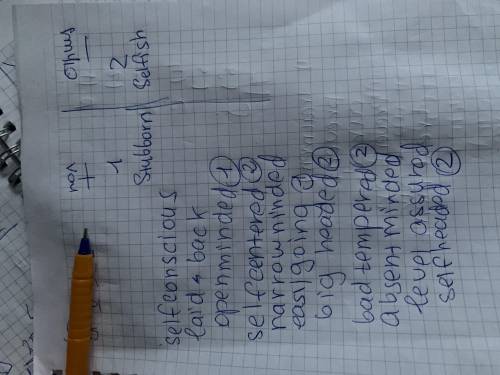 + —
1 2
Stubborn Selfish
selfconscious
laid back
openminded 1
selfcentered 2
narrowminded
easilgoing 1
big headed 2
bad tempered 2
absent minded
level assured
selfheaded 2